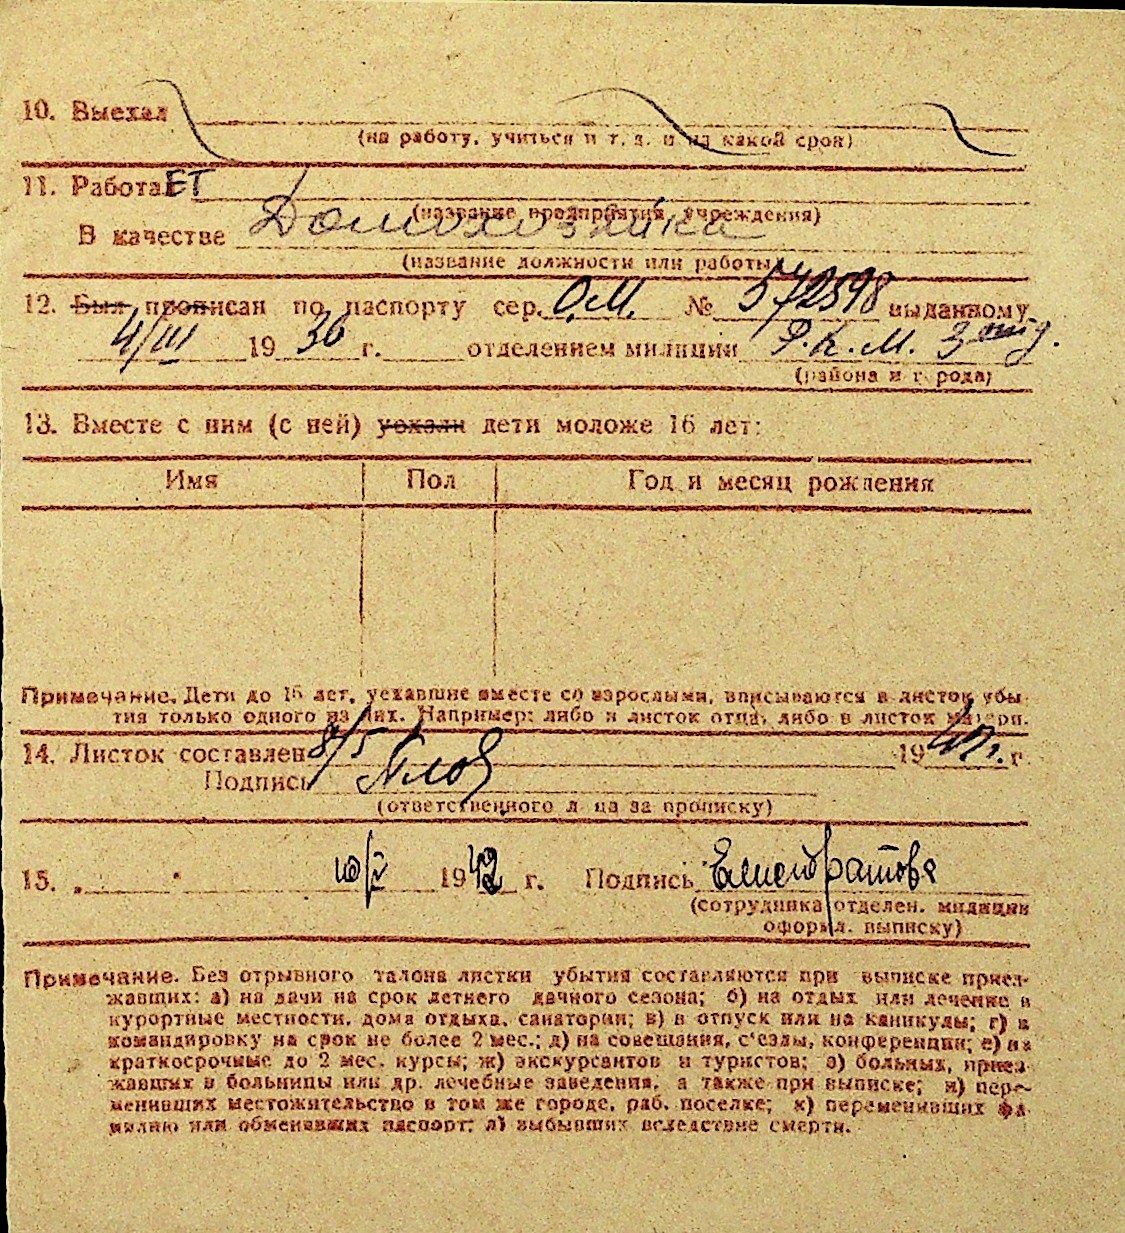 10. Выехал
(на работу, учиться и т. д. и на какой срок)
11. РаботаЕТ
(название предприятия, учреждения)
В качестве Домохозяйка
(название должности или работы)
12. Был прописан по паспорту сер. О.М. № 572598 выданному
4/III 1936 г. отделением милиции Р.К.М.
(района и города)
13. Вместе с ним (с ней) уехали дети моложе 16 лет:
Имя Пол Год и месяц рождения
Примечание. Дети до 16 лет, уехавшие вместе со взрослыми, вписываются в листок убы-
тия только одного из них. Например: либо в листок отца, либо в листок матери.
14. Листок составлен 8/5 19 г.
Подпись
(ответственного лица за прописку)
15. „ " 10/V 1942 г. Подпись
(сотрудника отделен. милиции
оформл. выписку)
Примечание. Без отрывного талона листки убытия составляются при выписке приез-
жавших: а) на дачи на срок летнего дачного сезона; б) на отдых или лечение в
курортные местности, дома отдыха, санатории; в) в отпуск или на каникулы; г) в
командировку на срок не более 2 мес.; д) на совещания, с'езды, конференции; е) на
краткосрочные до 2 мес. курсы; ж) экскурсантов и туристов; з) больных, приез-
жавших в больницы или др. лечебные заведения, а также при выписке; и) пере-
менивших местожительство в том же городе, раб. поселке; к) переменивших фа-
милию или обменявших паспорт; л) выбывших вследствие смерти.